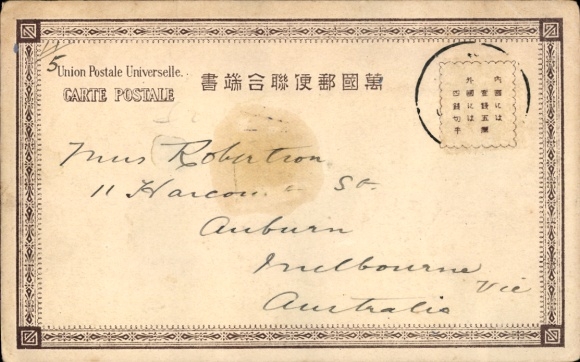 5
Union Postale Universelle.
CARTE POSTALE
書端合聯便郵國萬
内國には
壹錢五厘
外國には
四錢切手
Mrs Robertson
11 Harcourt St.
Auburn
Melbourne
Vic
Australia